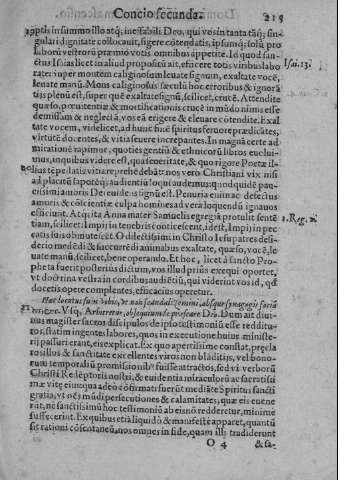 Concio secunda.
215
in summo illo atq; ineffabili Deo, qui vos in tanta tāq; sin-
gulari dignitate collocauit, figere cōtendatis, ipsumq; solū pro
laborū vestrorū præmio votis omnibus appetite. Id quod san-
ctus Isaias licet in aliud propositū ait, efficere totis viribus labo
rate: super montem caliginosum leuate signum, exaltate vocē,
leuate manū. Mons caliginosus sæculū hoc erroribus & ignorā
tijs plenū est, super quē exaltate signū, scilicet, crucē. Attendite
quæso, pœnitentiæ & mortificationis crucē in mūdo nimia esse
demissam & neglectā, vos eā erigere & eleuare cōtendite. Exal
tate vocem, videlicet, ad hunc spiritus feruore prædicātes,
virtutē docentes, & vitia seuere increpantes. In magnā certe ad
mirationē rapimur, quoties gentiū & ethnicorū libros euolui-
mus, inquibus videre est, qua seueritate, & quo rigore
vitia reprehēdebāt: nos vero Christiani vix nisi
ad placitū sapoteq; audientiū loqui audemus: quod quidē pau-
cissimi amoris Dei euidens signū est. Penuria enim ac defectus
amoris & cōscientiæ culpa homines ad vera loquendū ignauos
efficiunt. Atq; ita Anna mater Samuelis egregiā protulit sentē
tiam, scilicet: Impij in tenebris conticescent, idest, Impij in pec
catis suis obmutescēt. O dilectissimi in Christo Iesu patres desi-
derio medēdi & succurrēdi animabus exaltate, quæso, vocē, le
uate manū, scilicet, bene operando. Et hoc, licet à sancto Pro-
pheta fuerit posterius dictum, vos illud prius exequi oportet,
vt doctrina vestra in cordibus audiētiū, qui viderint vos id, qd
docetis opere complentes, efficacius operetur.
Hæc locutus sum vobis, vt non scandalizemini, absque synagogis faciū
Vsq; Arbitretur, obsequium se præstare Deo. Dum ait diui-
nus magister sacros discipulos de ipso testimoniū esse redditu-
ros, statim ingentes labores, quos in executione huius ministe-
rij passuri erant, eis explicat. Ex quo apertissime constat, præcla
ros illos & sanctitate excellentes viros non blāditijs, vel bono-
rum temporaliū promissionibus fuisse attractos, sed vi verborū
Christi Redēptoris nostri, & euidentia miraculorū ac sacratissi
mæ vitę eiusque adeo cōfirmati fuerūt mediāte Spiritus sancti
gratia, vt oēs mūdi persecutiones & calamitates, quæ eis euene
rūt, ne sanctissimū hoc testimoniū ab eis nō redderetur, minime
suffecerint. Ex quibus etiā liquidò & manifestè apparet, quantū
sit rationi cōsentaneū, nos omnes in fide, quam illi tradiderunt
O 4
& sa-
Isai. 13.
1. Reg. 2.